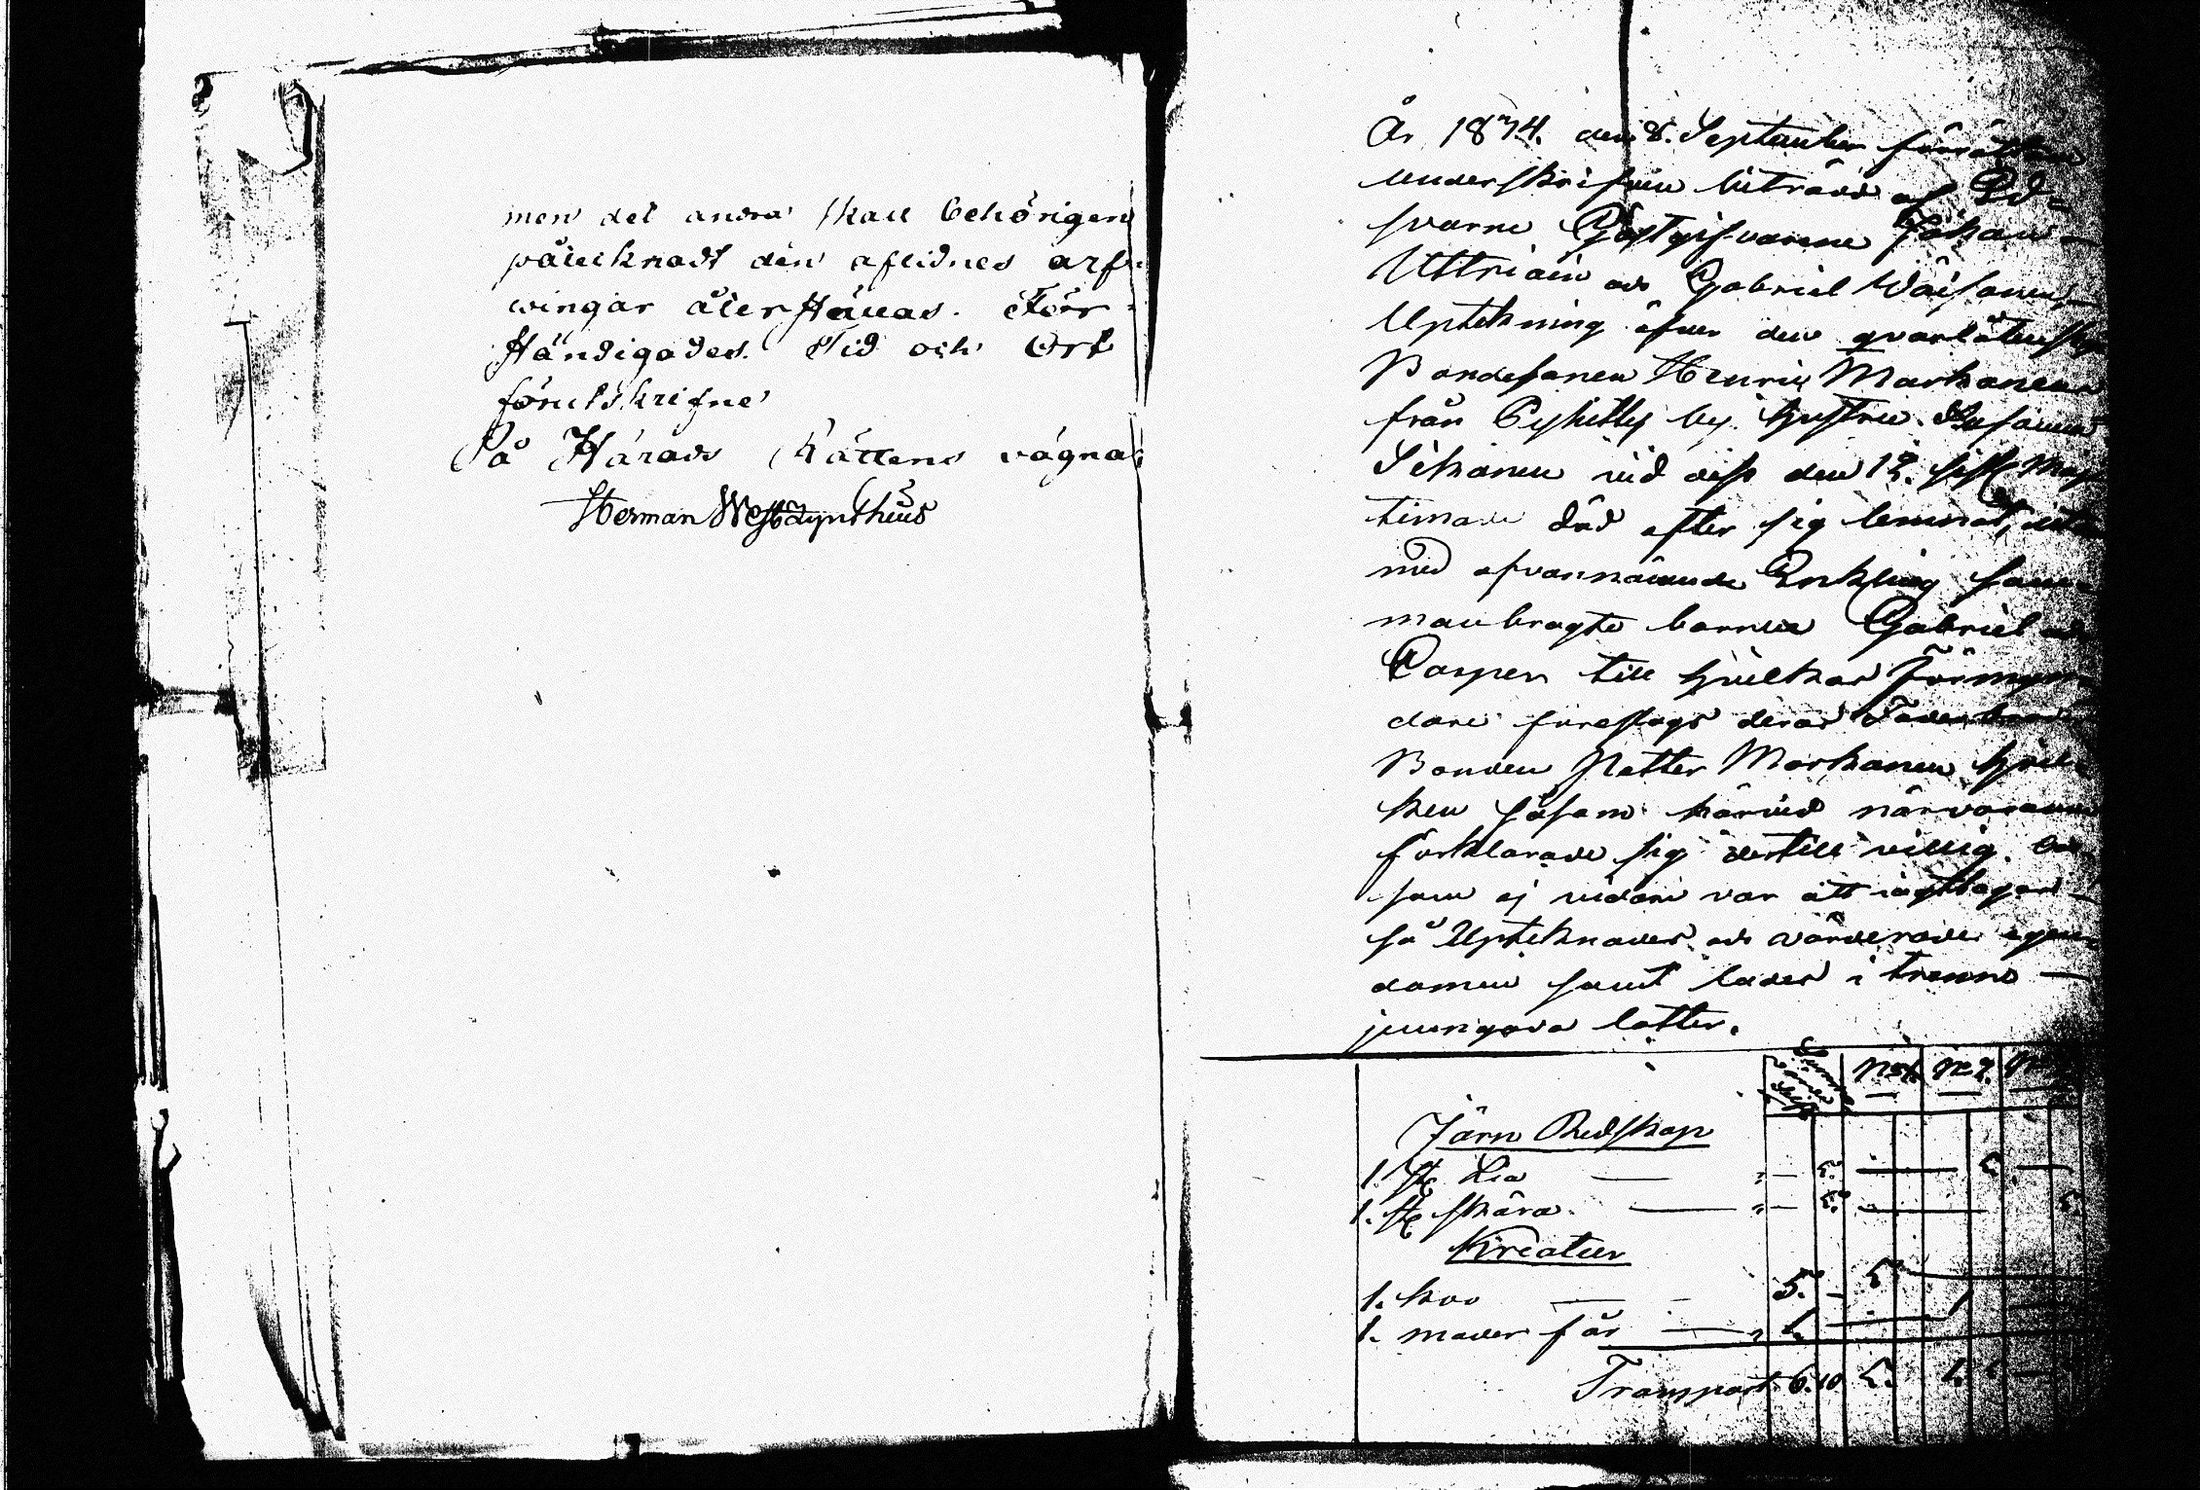 men det andra skall behörigen
påtecknadt den aflidnes arf-
wingar återställas. För-
Händigades. Tid och Ort
förutskrifne
På Härads Rättens vägnar
Herman Westdynthius
År 1874. den 8. September förrättade
underskrifven biträdd af Ed-
svarne Gästgifvarene Johan
Uttriain och Gabriel Wäisänen
Upteckning öfver den qvarlåtenskap
Bondesonen Henric Markanens
från Pyhitty by hustru Susanna
Sikanen vid dess den 12. sistl May
timade död efter sig lemnat,
med ofvannämnde Enkling sam-
manbragte barnen Gabriel och
Casper till hvilkas Förmyn-
dare föreslogs deras Faderbroder
Bonden Petter Markanen hvil-
ken såsom härvid närvarande
förklarade sig dertill villig.
som ej vidare var att iagttaga
så Upteknades och värderades egen-
domen samt lades i trenne
jemngoda lotter.
No 1. No 2.
Järn Redskap
1. st. Lia — 5. — 5. —
1. st. skära. — 5. — 5.
Kreatur
1. koo — 5. — 5. —
1. moder får — 1. — 1.
Transport 6.10 5. 1.